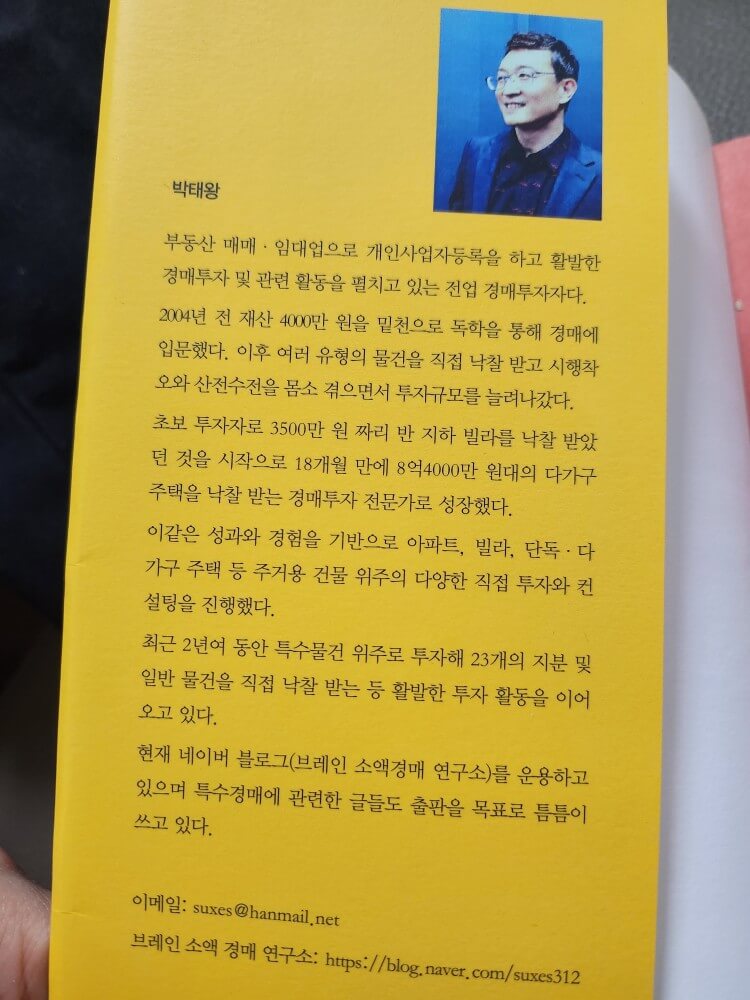 박태왕
부동산 매매 · 임대업으로 개인사업자등록을 하고 활발한
경매투자 및 관련 활동을 펼치고 있는 전업 경매투자자다.
2004년 전 재산 4000만 원을 밑천으로 독학을 통해 경매에
입문했다. 이후 여러 유형의 물건을 직접 낙찰 받고 시행착
오와 산전수전을 몸소 겪으면서 투자규모를 늘려나갔다.
초보 투자자로 3500만 원 짜리 반 지하 빌라를 낙찰 받았
던 것을 시작으로 18개월 만에 8억4000만 원대의 다가구
주택을 낙찰 받는 경매투자 전문가로 성장했다.
이같은 성과와 경험을 기반으로 아파트, 빌라, 단독 · 다
가구 주택 등 주거용 건물 위주의 다양한 직접 투자와 컨
설팅을 진행했다.
최근 2년여 동안 특수물건 위주로 투자해 23개의 지분 및
일반 물건을 직접 낙찰 받는 등 활발한 투자 활동을 이어
오고 있다.
현재 네이버 블로그(브레인 소액경매 연구소)를 운용하고
있으며 특수경매에 관련한 글들도 출판을 목표로 틈틈이
쓰고 있다.
이메일: suxes@hanmail.net
브레인 소액 경매 연구소: https://blog.naver.com/suxes312